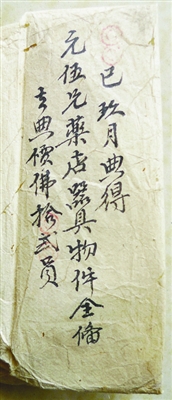 已玖月典得
元伍兄藥店器具物件全備
去典價佛拾弍員